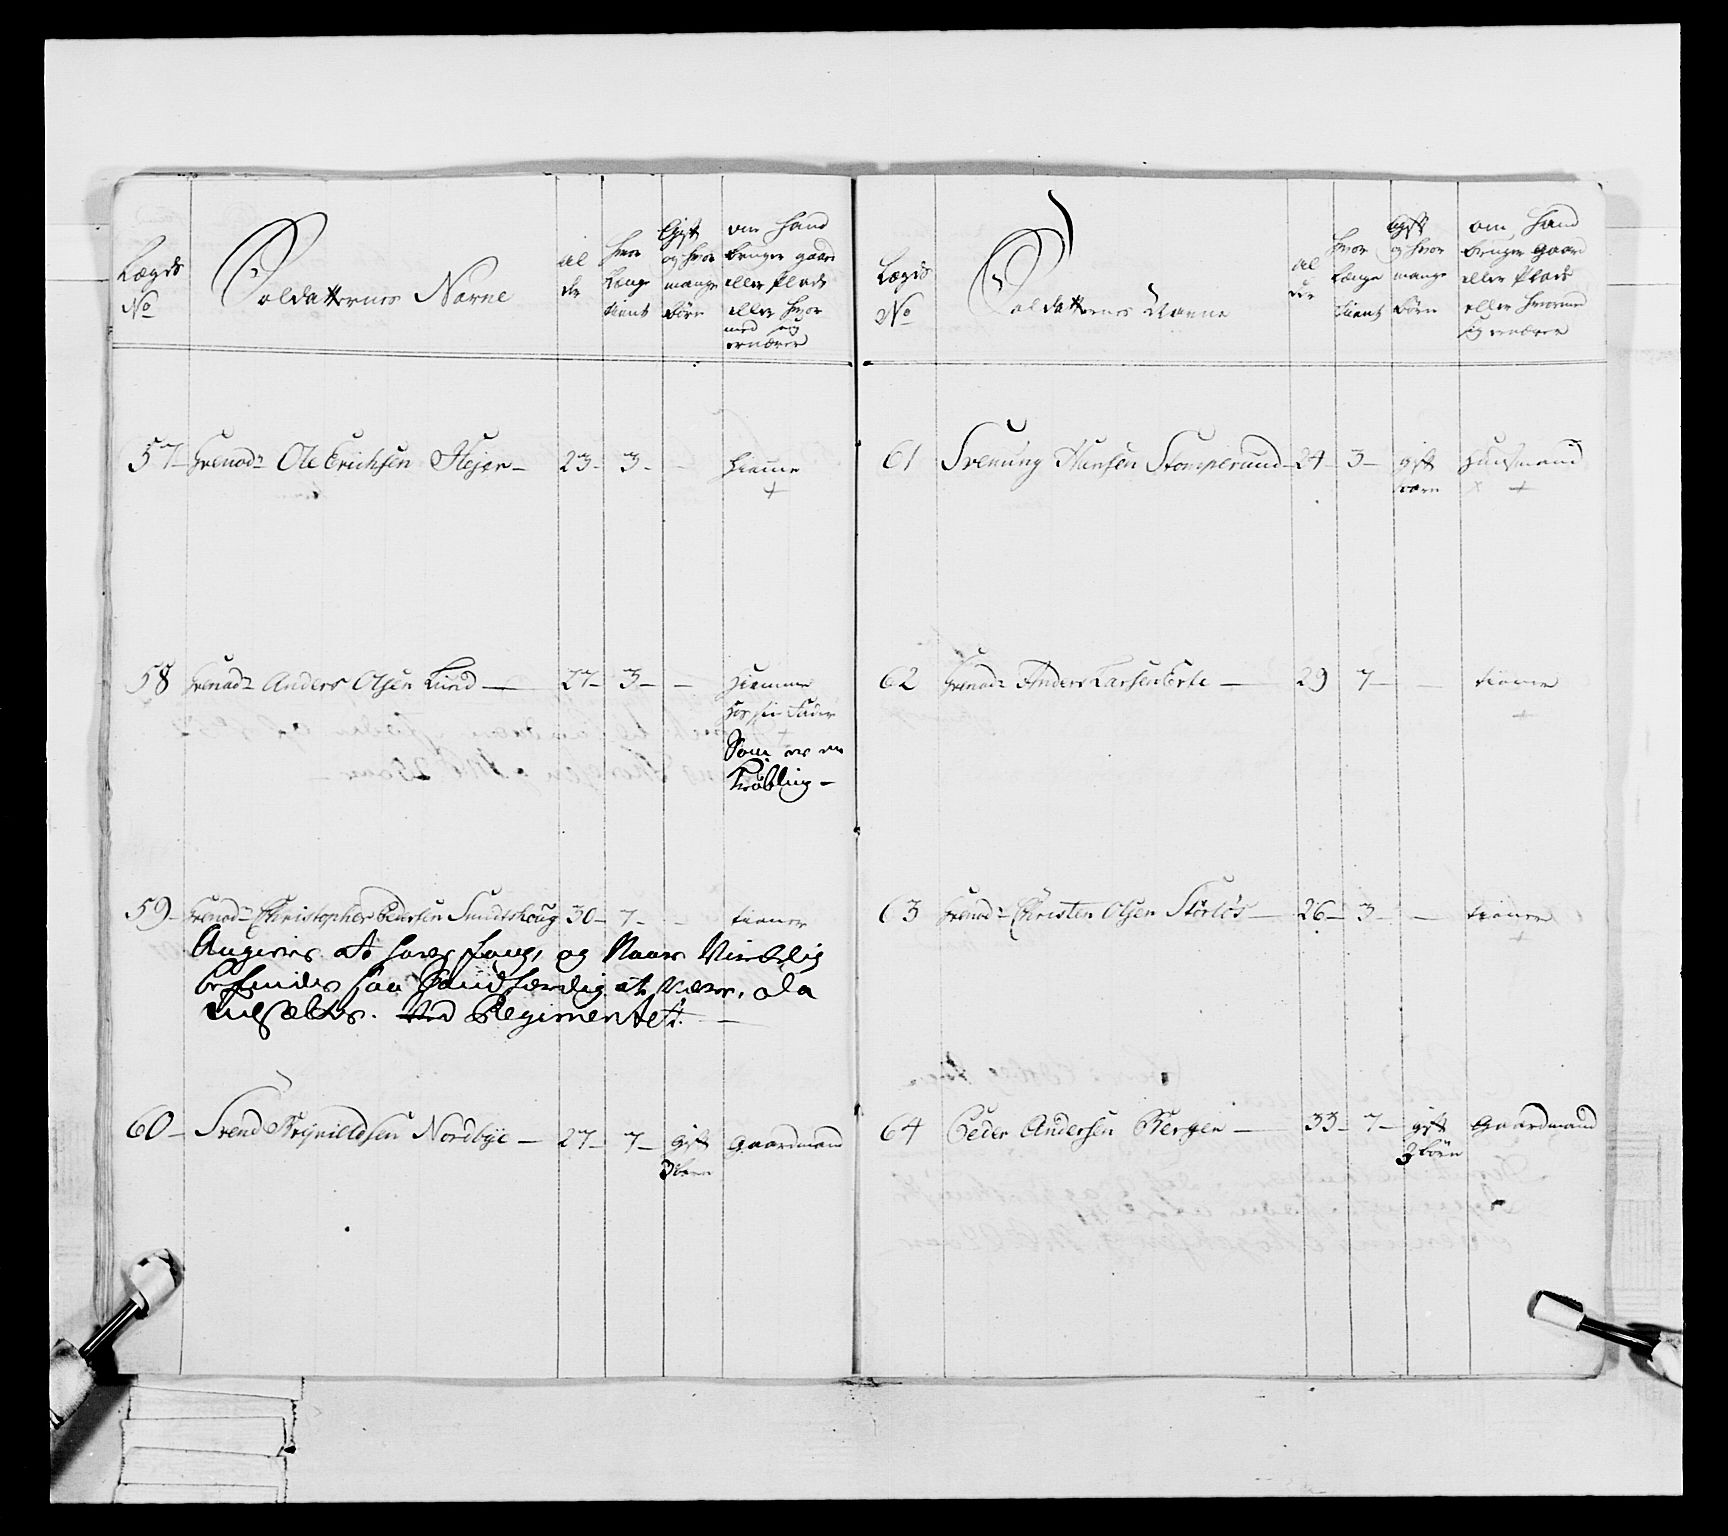 Lægds No
Soldatternes Navne
Al der
hvor længe tient
Gift og hvor mange Børn
om hand bruger gaard eller Plads eller hvor med sig ernærer
57 Grenad: Ole Erichsen Hejer 23 3 - hiemme
58 Grenad: Anders Olsen Lund 27 3 - hiemme
hos sin Fader
Som er en
Krøbling
59 Grenad: Christopher Pedersen Sundshoug 30 7 - tiener
Angives at have og Naar Virkelig
befindes saa at være, da
Ved Regimentet.
60 Svend Nordbye 27 7 gift Gaardmand
3 børn
Lægds No
Soldatternes Navne
Al der
hvor længe tient
Gift og hvor mange Børn
om hand bruger gaard eller Plads eller hvormed sig ernærer
61 Hansen Stomperud 24 3 gift Huusmand
62 Grenad: Anders Larsen 29 7 - tiener
63 Grenad: Christen Olsen 26 3 - tiener
64 Peder Andersen Bergen 33 7 gift Gaardmand
3 børn